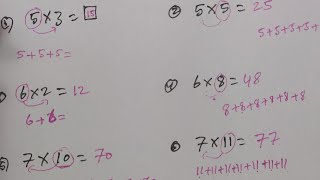 ① 5×3 = 15
5+5+5=
② 5×5 = 25
5+5+5+5+
6×2 = 12
6+6=
④ 6×8 = 48
8+8+8+8+8+8
⑤ 7×10 = 70
7×11 = 77
11+11+11+11+11+11+11